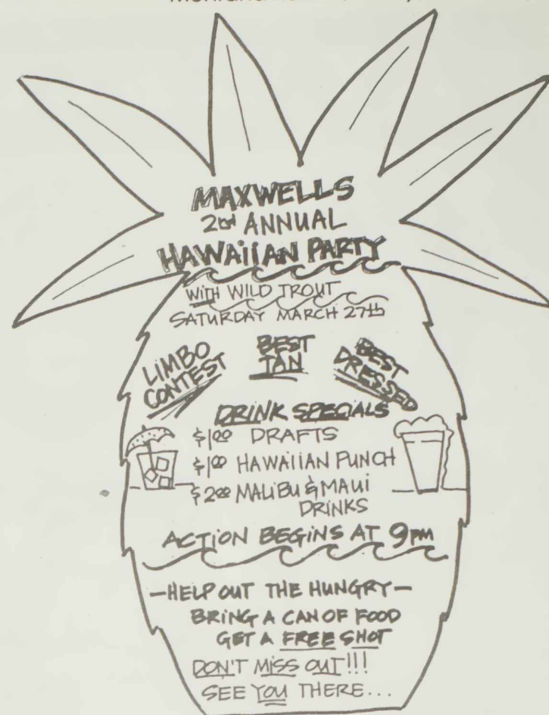 MAXWELLS
2nd ANNUAL
HAWAIIAN PARTY
WITH WILD TROUT
SATURDAY MARCH 27th
LIMBO
CONTEST
BEST
TAN
BEST
DRESSED
DRINK SPECIALS
$1.00 DRAFTS
$1.00 HAWAIIAN PUNCH
$2.00 MALIBU & MAUI
DRINKS
ACTION BEGINS AT 9PM
-HELP OUT THE HUNGRY-
BRING A CAN OF FOOD
GET A FREE SHOT
DON'T MISS OUT!!!
SEE YOU THERE...